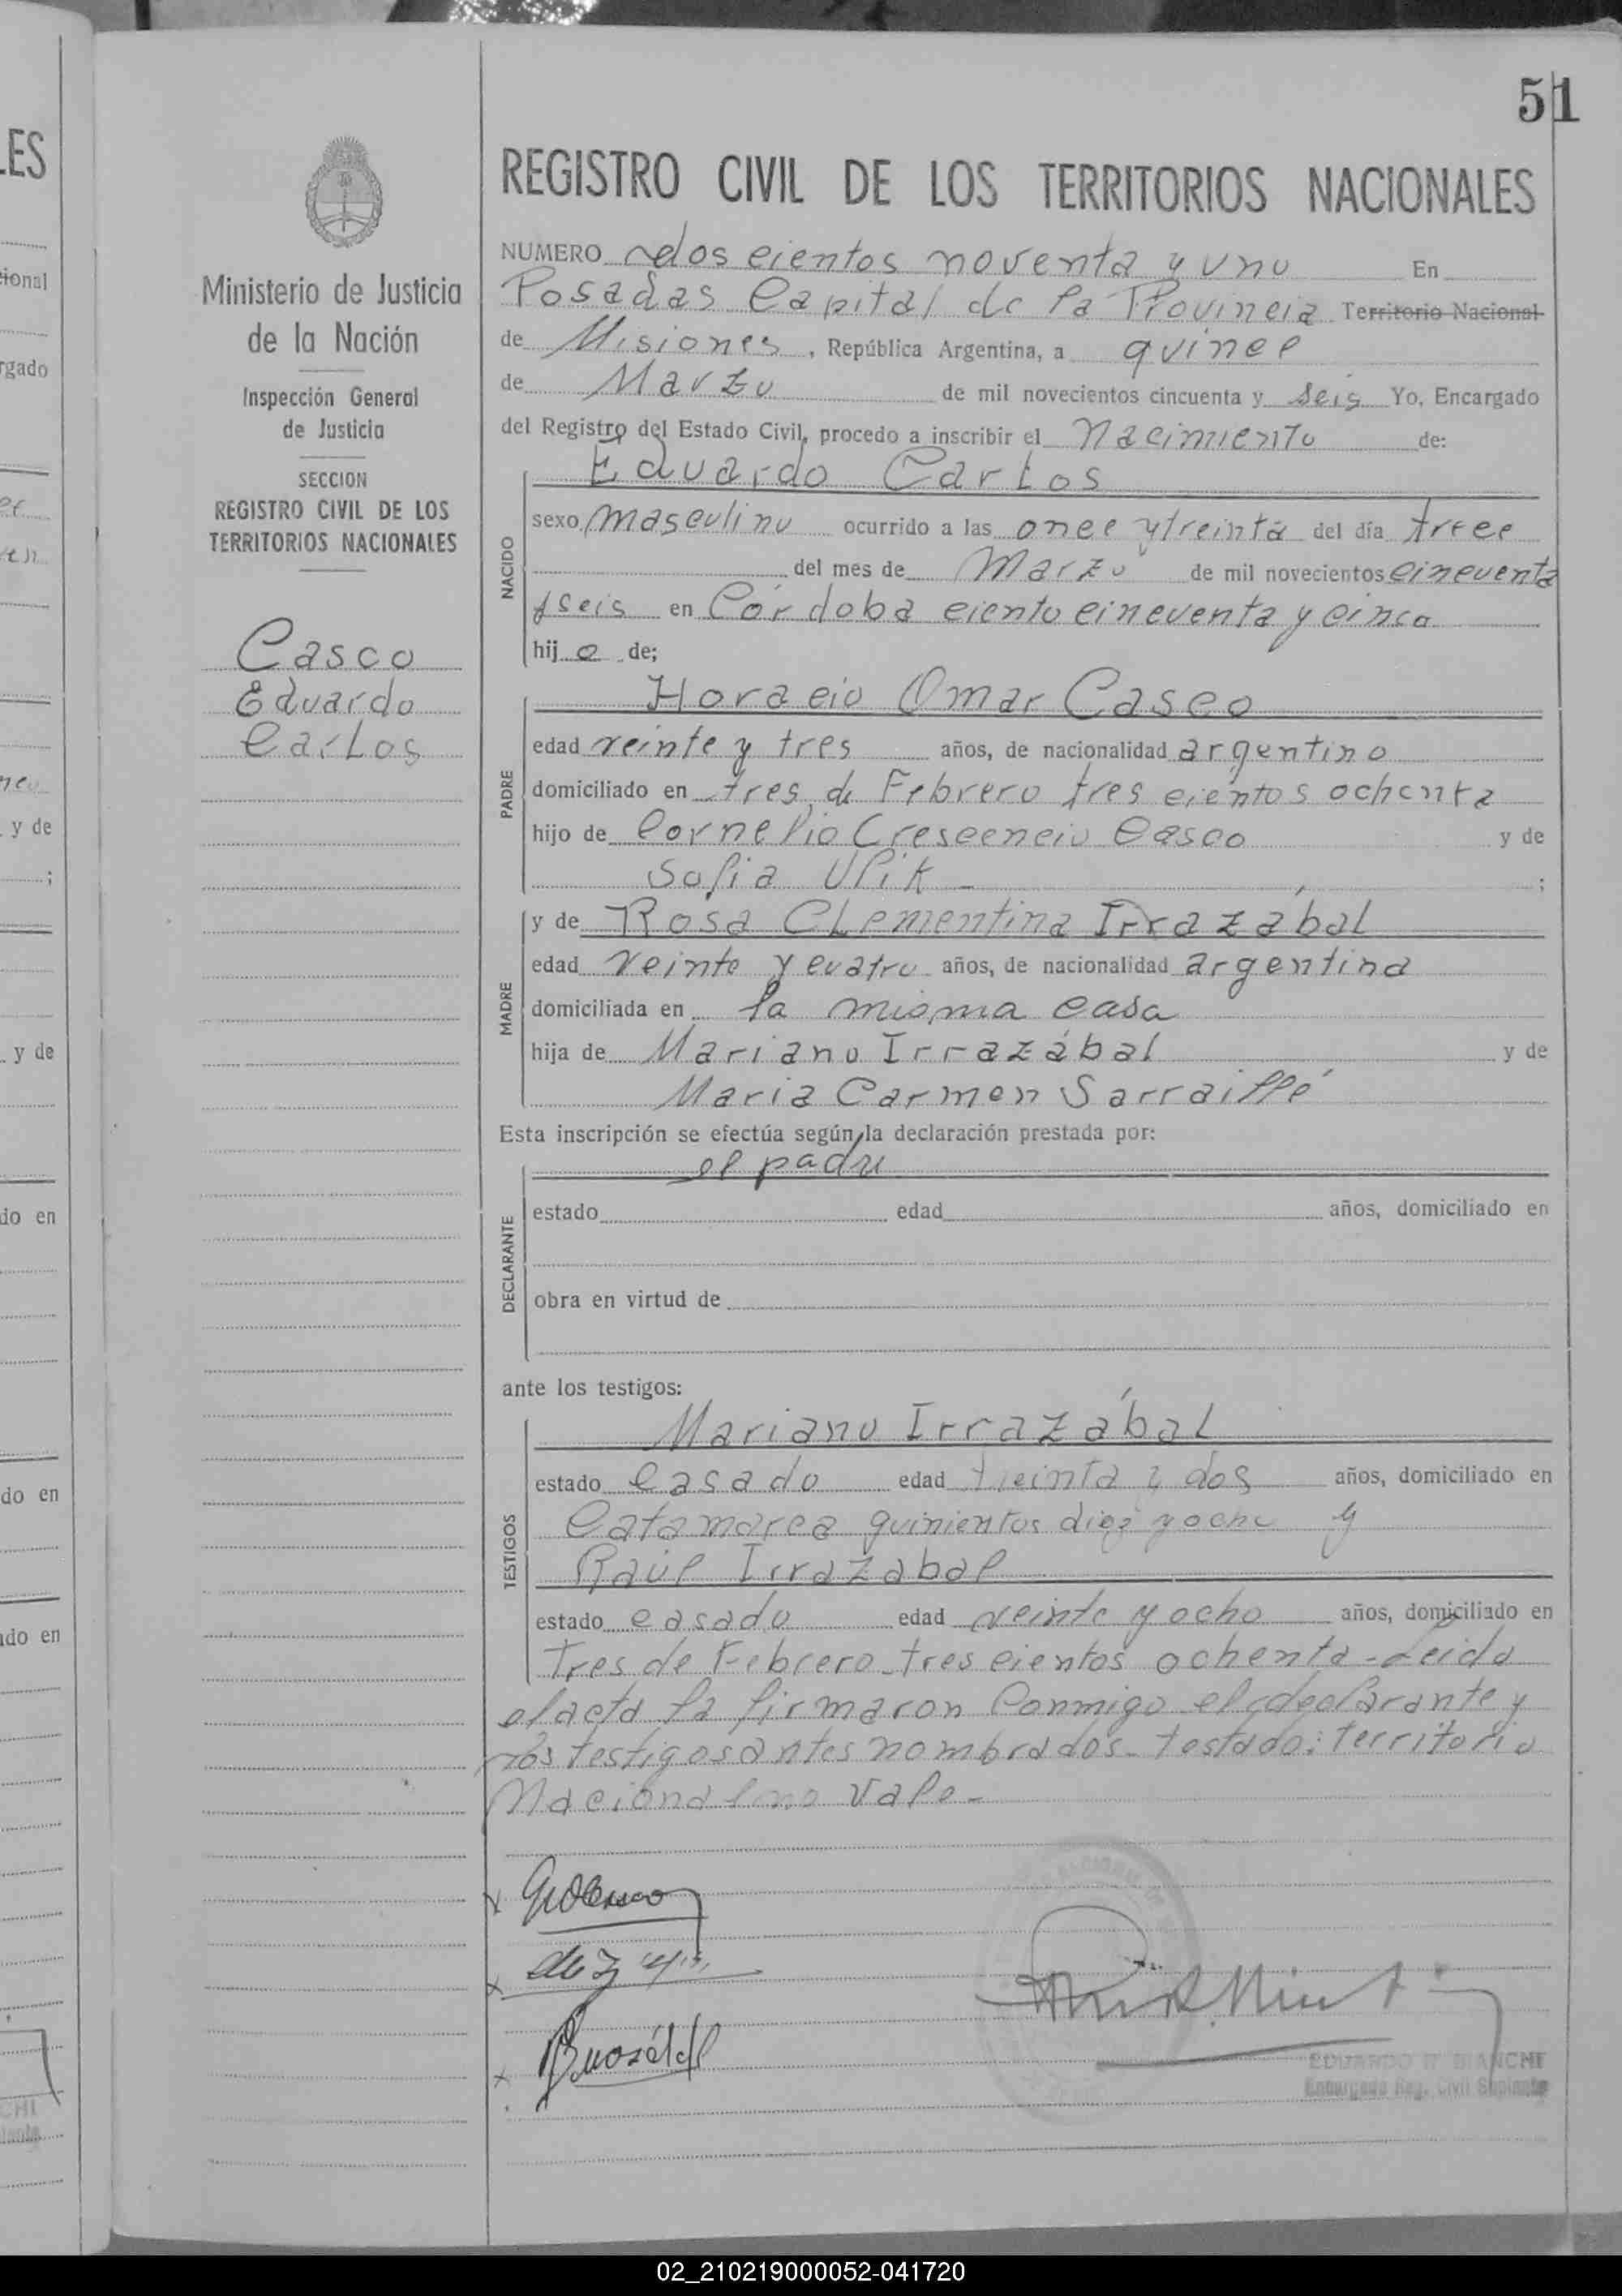 51
REGISTRO CIVIL DE LOS TERRITORIOS NACIONALES
Ministerio de Justicia
de la Nación
Inspección General
de Justicia
SECCION
REGISTRO CIVIL DE LOS
TERRITORIOS NACIONALES
Casco
Eduardo
Carlos
NUMERO dos cientos noventa y uno En
Posadas Capital de la Provincia Territorio Nacional
de Misiones, República Argentina, a quince
de Marzo de mil novecientos cincuenta y seis Yo, Encargado
del Registro del Estado Civil, procedo a inscribir el nacimiento de:
Eduardo Carlos
NACIDO
sexo masculino ocurrido a las once y treinta del día trece
del mes de Marzo de mil novecientos cincuenta
y seis en Córdoba ciento cincuenta y cinco
hijo de;
Horacio Omar Casco
PADRE
edad veinte y tres años, de nacionalidad argentino
domiciliado en tres de Febrero tres cientos ochenta
hijo de Cornelio Crescencio Casco y de
Sofia Ulik ;
MADRE
y de Rosa Clementina Irrazábal
edad veinte y cuatro años, de nacionalidad argentina
domiciliada en la misma casa
hija de Mariano Irrazábal y de
Maria Carmen Sarraillé
Esta inscripción se efectúa según la declaración prestada por:
el padre
DECLARANTE
estado edad años, domiciliado en
obra en virtud de
ante los testigos:
Mariano Irrazábal
TESTIGOS
estado casado edad treinta y dos años, domiciliado en
Catamarca quinientos diez y ocho y
Raúl Irrazabal
estado casado edad veinte y ocho años, domiciliado en
Tres de Febrero tres cientos ochenta - Leida
el acta la firmaron conmigo el declarante y
los testigos antes nombrados - testado: territorio
Nacional no vale -
EDUARDO R BIANCHI
Encargado Reg. Civil Suplente
02_210219000052-041720